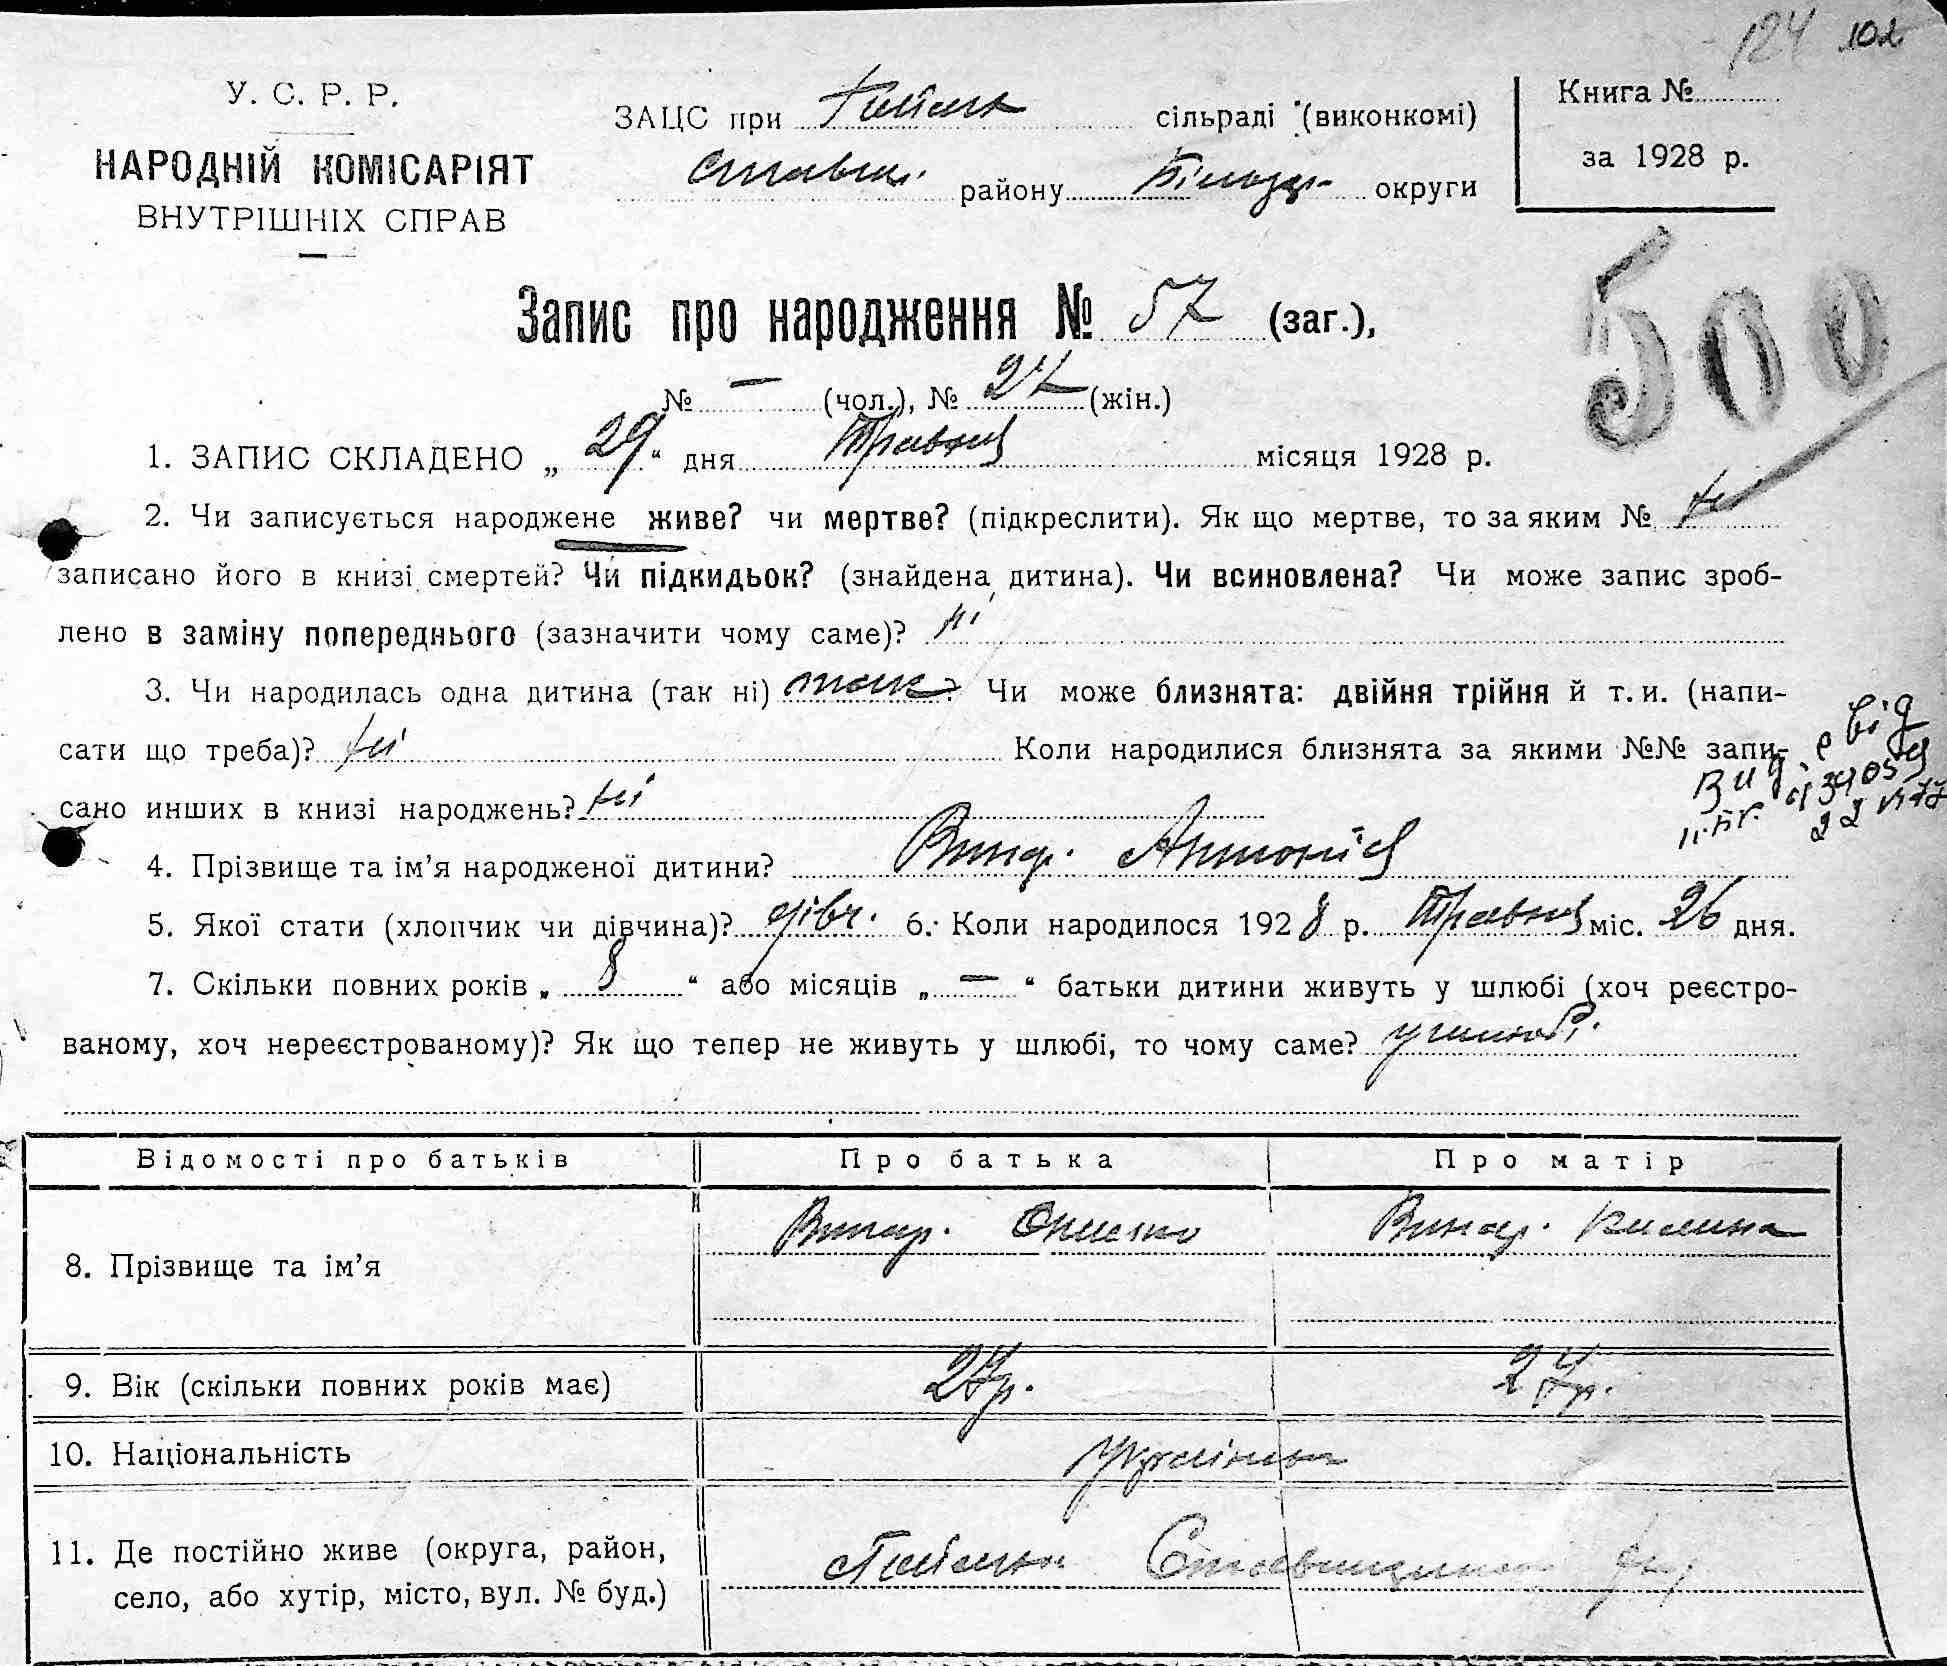 124 102
У. С. Р. Р.
НАРОДНІЙ КОМІСАРІЯТ
ВНУТРІШНІХ СПРАВ
ЗАЦС при сільраді (виконкомі)
району округи
Книга №
за 1928 р.
500
Запис про народження № 57 (заг.),
№ — (чол.), № 27 (жін.)
1. ЗАПИС СКЛАДЕНО „ 29 “ дня Травня місяця 1928 р.
2. Чи записується народжене живе? чи мертве? (підкреслити). Як що мертве, то за яким № ні
записано його в книзі смертей? Чи підкидьок? (знайдена дитина). Чи всиновлена? Чи може запис зроб-
лено в заміну попереднього (зазначити чому саме)? ні
3. Чи народилась одна дитина (так ні) так? Чи може близнята: двійня трійня й т. и. (напи-
сати що треба)? ні Коли народилися близнята за якими №№ запи-
сано инших в книзі народжень? ні
4. Прізвище та ім’я народженої дитини? Антонія
5. Якої стати (хлопчик чи дівчина)? дівч. 6. Коли народилося 1928 р. Травня міс. 26 дня.
7. Скільки повних років „ 8 “ або місяців „ — “ батьки дитини живуть у шлюбі (хоч реєстро-
ваному, хоч нереєстрованому)? Як що тепер не живуть у шлюбі, то чому саме? у шлюбі
Відомості про батьків Про батька Про матір
8. Прізвище та ім’я Килина
9. Вік (скільки повних років має) 27р. 27р.
10. Національність
11. Де постійно живе (округа, район,
село, або хутір, місто, вул. № буд.)